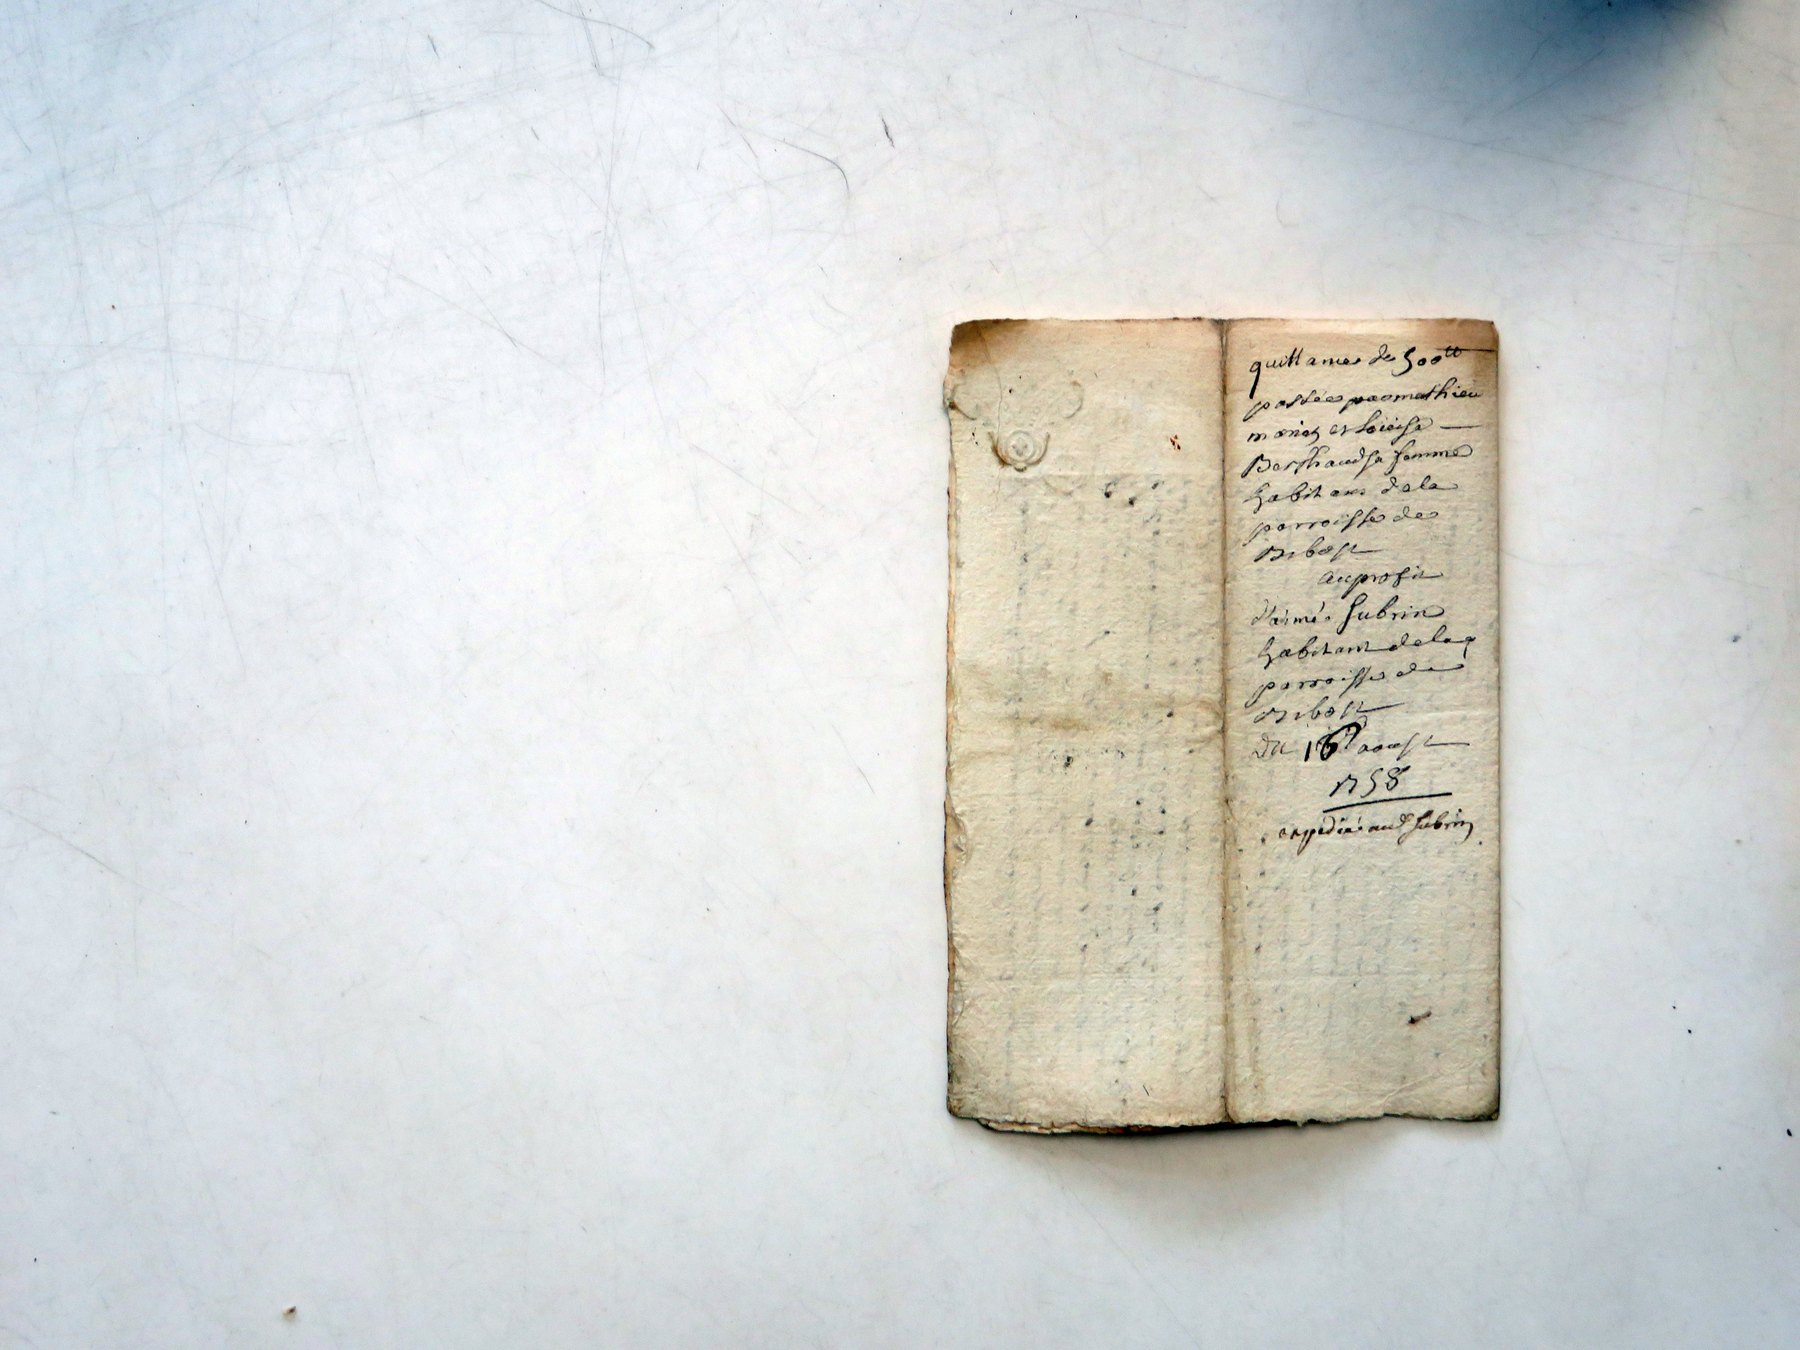 quittance de 500 tt
passée par mathieu
et Loüise
Berthaud sa femme
habitans de la
parroisse de
Bibost
au profit
d'aimé Subrin
habitant de la
parroisse de
Bibost
Du 16 aoust
1758
expedié aud Subrin